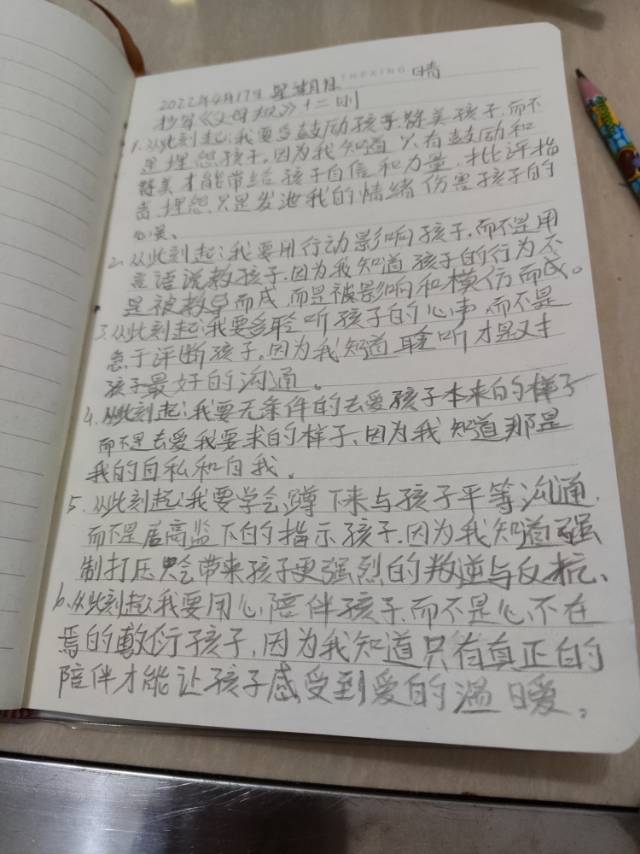 2022年4月17日 星期日 INDEXING 晴
抄写《父母规》十二则
1.从此刻起:我要多鼓励孩子.赞美孩子.而不
是埋怨孩子,因为我知道只有鼓励和
赞美才能带给孩子自信和力量.批评指
责.埋怨.只是发泄我的情绪.伤害孩子的
心灵。
2.从此刻起:我要用行动影响孩子,而不是用
言语说教孩子.因为我知道孩子的行为不
是被教导而成,而是被影响和模仿而成。
3.从此刻起:我要多聆听孩子的心声.而不是
急于评断孩子,因为我知道聆听才是对
孩子最好的沟通。
4.从此刻起:我要无条件的去爱孩子本来的样子
而不是去爱我要求的样子,因为我知道那是
我的自私和自我、
5.从此刻起:我要学会蹲下来与孩子平等沟通.
而不是居高监下的指示孩子.因为我知道强
制打压只会带来孩子更强烈的叛逆与反抗、
6.从此刻起:我要用心陪伴孩子.而不是心不在
焉的敷衍孩子,因为我知道只有真正的
陪伴才能让孩子感受到爱的温暖。